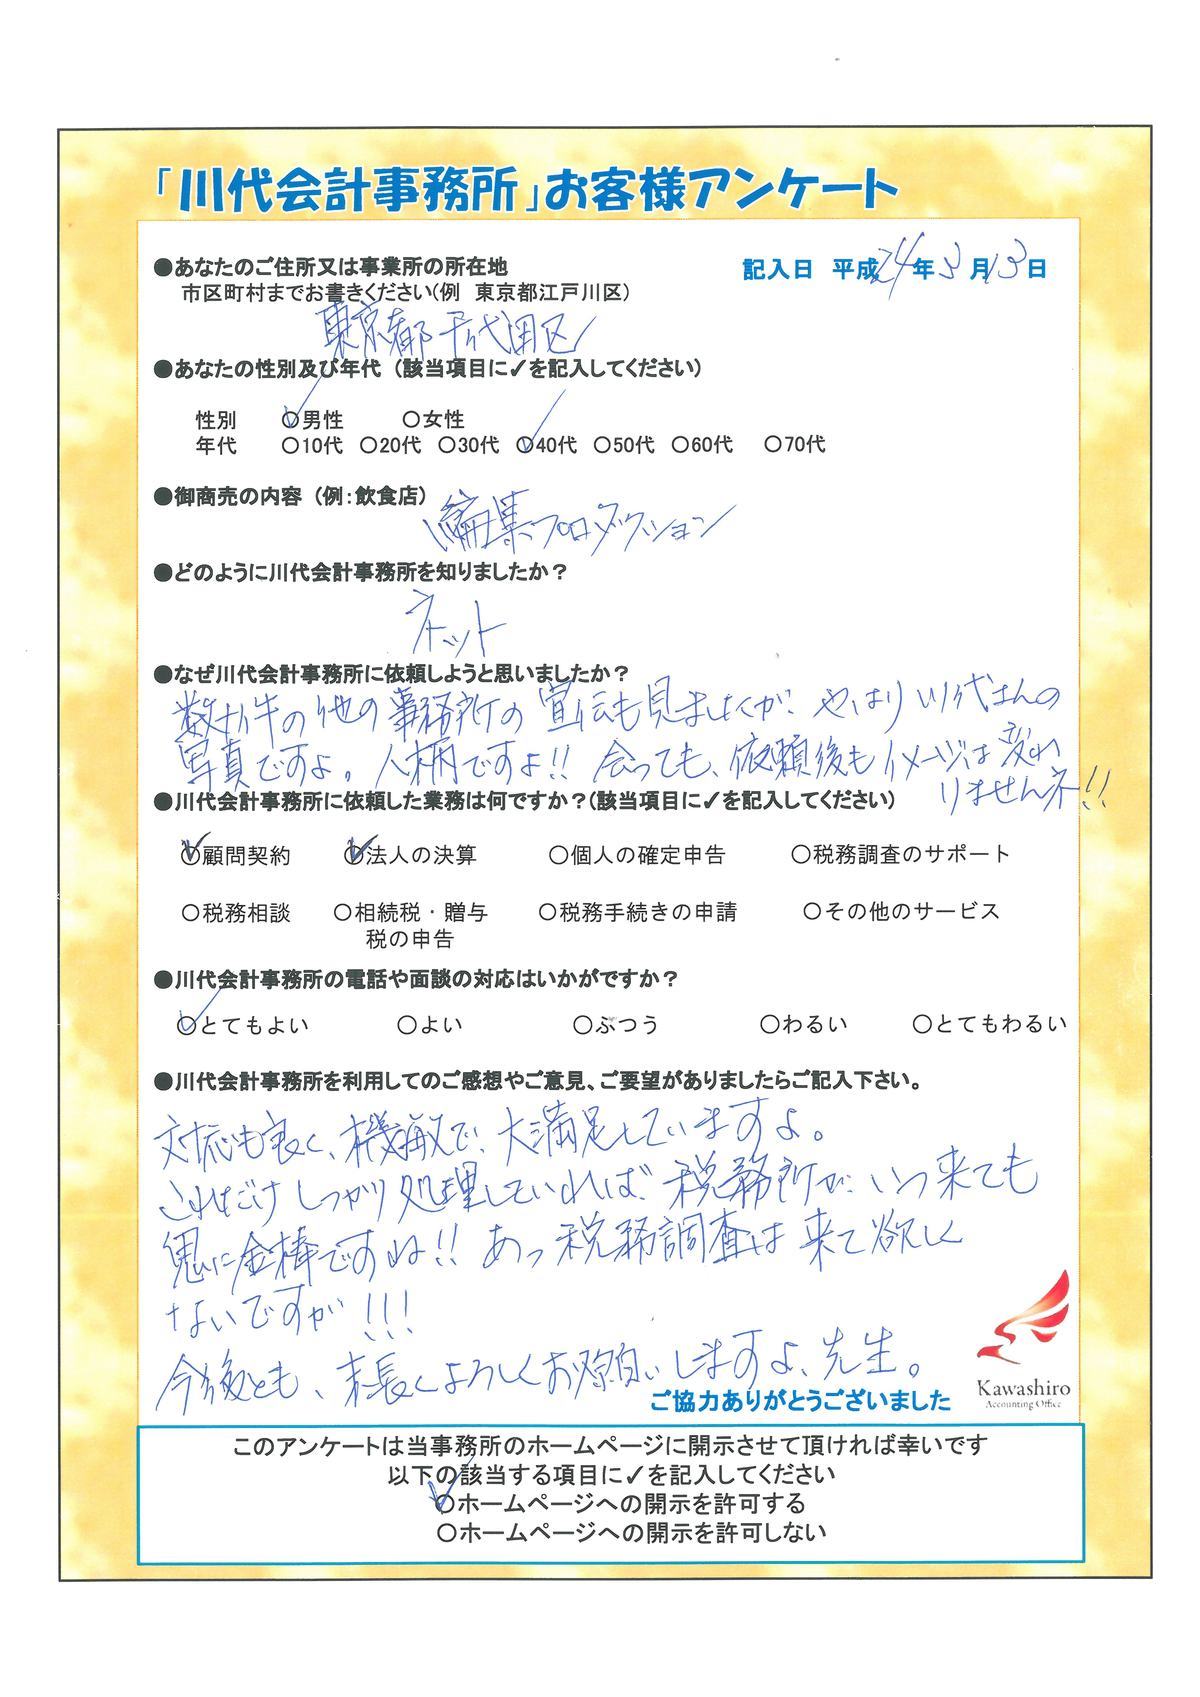 「川代会計事務所」お客様アンケート
●あなたのご住所又は事業所の所在地
記入日 平成24年3月13日
市区町村までお書きください(例 東京都江戸川区)
東京都千代田区
●あなたの性別及び年代 (該当項目に✓を記入してください)
性別 ○男性 ○女性
年代 ○10代 ○20代 ○30代 ○40代 ○50代 ○60代 ○70代
●御商売の内容 (例:飲食店)
編集プロダクション
●どのように川代会計事務所を知りましたか?
ネット
●なぜ川代会計事務所に依頼しようと思いましたか?
数十件の他の事務所の宣伝も見ましたが、やはり川代さんの
写真ですよ。人柄ですよ!! 会っても、依頼後もイメージは変わ
りませんネ!!
●川代会計事務所に依頼した業務は何ですか?(該当項目に✓を記入してください)
○顧問契約 ○法人の決算 ○個人の確定申告 ○税務調査のサポート
○税務相談 ○相続税・贈与 ○税務手続きの申請 ○その他のサービス
税の申告
●川代会計事務所の電話や面談の対応はいかがですか?
○とてもよい ○よい ○ふつう ○わるい ○とてもわるい
●川代会計事務所を利用してのご感想やご意見、ご要望がありましたらご記入下さい。
対応も良く、機敏で、大満足していますよ。
これだけしっかり処理していれば、税務所が、いつ来ても
鬼に金棒ですね!! あっ税務調査は来て欲しく
ないですが!!!
今後とも、末長くよろしくお願いしますよ、先生。
ご協力ありがとうございました
Kawashiro
Accounting Office
このアンケートは当事務所のホームページに開示させて頂ければ幸いです
以下の該当する項目に✓を記入してください
○ホームページへの開示を許可する
○ホームページへの開示を許可しない